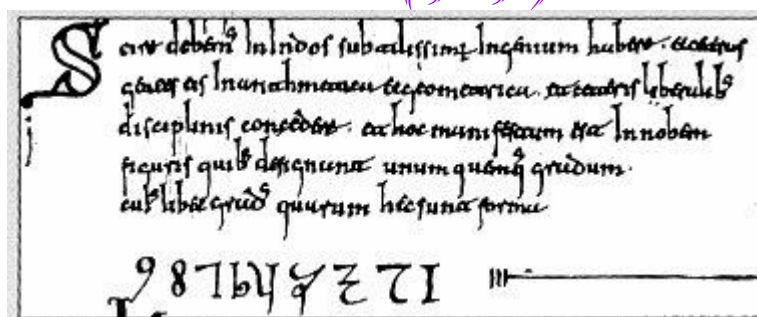 Scire debem⁹ In Indos subtilissimū Ingenium habere. et ceteras
gentes eis In arithmetica et geometrica. et ceteris liberalib⁹
disciplinis concedere. et hoc manifestum est In nobem
figuris quib⁹ designant unum quemq⁹ gradum.
cui⁹libet grad⁹ quarum hec sunt forma
9 8 7 6 5 4 3 2 1